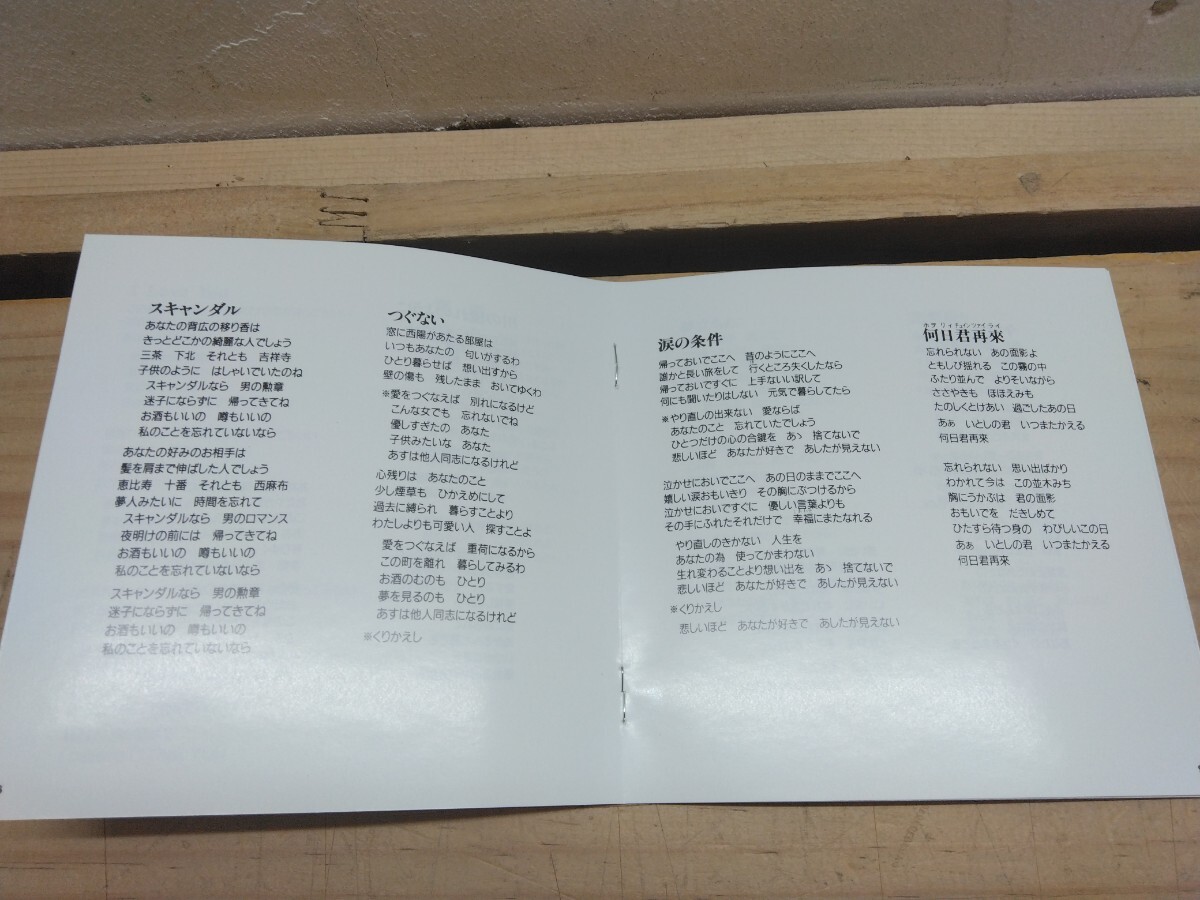 スキャンダル
あなたの背広の移り香は
きっとどこかの綺麗な人でしょう
三茶　下北　それとも　吉祥寺
子供のように　はしゃいでいたのね
スキャンダルなら　男の勲章
迷子にならずに　帰ってきてね
お酒もいいの　噂もいいの
私のことを忘れていないなら
あなたの好みのお相手は
髪を肩まで伸ばした人でしょう
恵比寿　十番　それとも　西麻布
夢人みたいに　時間を忘れて
スキャンダルなら　男のロマンス
夜明けの前には　帰ってきてね
お酒もいいの　噂もいいの
私のことを忘れていないなら
スキャンダルなら　男の勲章
迷子にならずに　帰ってきてね
お酒もいいの　噂もいいの
私のことを忘れていないなら
つぐない
窓に西陽があたる部屋は
いつもあなたの　匂いがするわ
ひとり暮らせば　想い出すから
壁の傷も　残したまま　おいてゆくわ
※愛をつぐなえば　別れになるけど
こんな女でも　忘れないでね
優しすぎたの　あなた
子供みたいな　あなた
あすは他人同志になるけれど
心残りは　あなたのこと
少し煙草も　ひかえめにして
過去に縛られ　暮らすことより
わたしよりも可愛い人　探すことよ
愛をつぐなえば　重荷になるから
この町を離れ　暮らしてみるわ
お酒のむのも　ひとり
夢を見るのも　ひとり
あすは他人同志になるけれど
※くりかえし
涙の条件
帰っておいでここへ　昔のようにここへ
誰かと長い旅をして　行くところ失くしたなら
帰っておいですぐに　上手ない訳して
何にも聞いたりはしない　元気で暮らしてたら
※やり直しの出来ない　愛ならば
あなたのこと　忘れていたでしょう
ひとつだけの心の合鍵を　あゝ　捨てないで
悲しいほど　あなたが好きで　あしたが見えない
泣かせにおいでここへ　あの日のままでここへ
嬉しい涙おもいきり　その胸にぶつけるから
泣かせにおいですぐに　優しい言葉よりも
その手にふれたそれだけで　幸福にまたなれる
やり直しのきかない　人生を
あなたの為　使ってかまわない
生れ変わることより想い出を　あゝ　捨てないで
悲しいほど　あなたが好きで　あしたが見えない
※くりかえし
悲しいほど　あなたが好きで　あしたが見えない
ホオ リィ チュイン ツァイ ライ
何日君再來
忘れられない　あの面影よ
ともしび揺れる　この霧の中
ふたり並んで　よりそいながら
ささやきも　ほほえみも
たのしくとけあい　過ごしたあの日
あぁ　いとしの君　いつまたかえる
何日君再来
忘れられない　思い出ばかり
わかれて今は　この並木みち
胸にうかぶは　君の面影
おもいでを　だきしめて
ひたすら待つ身の　わびしいこの日
あぁ　いとしの君　いつまたかえる
何日君再来